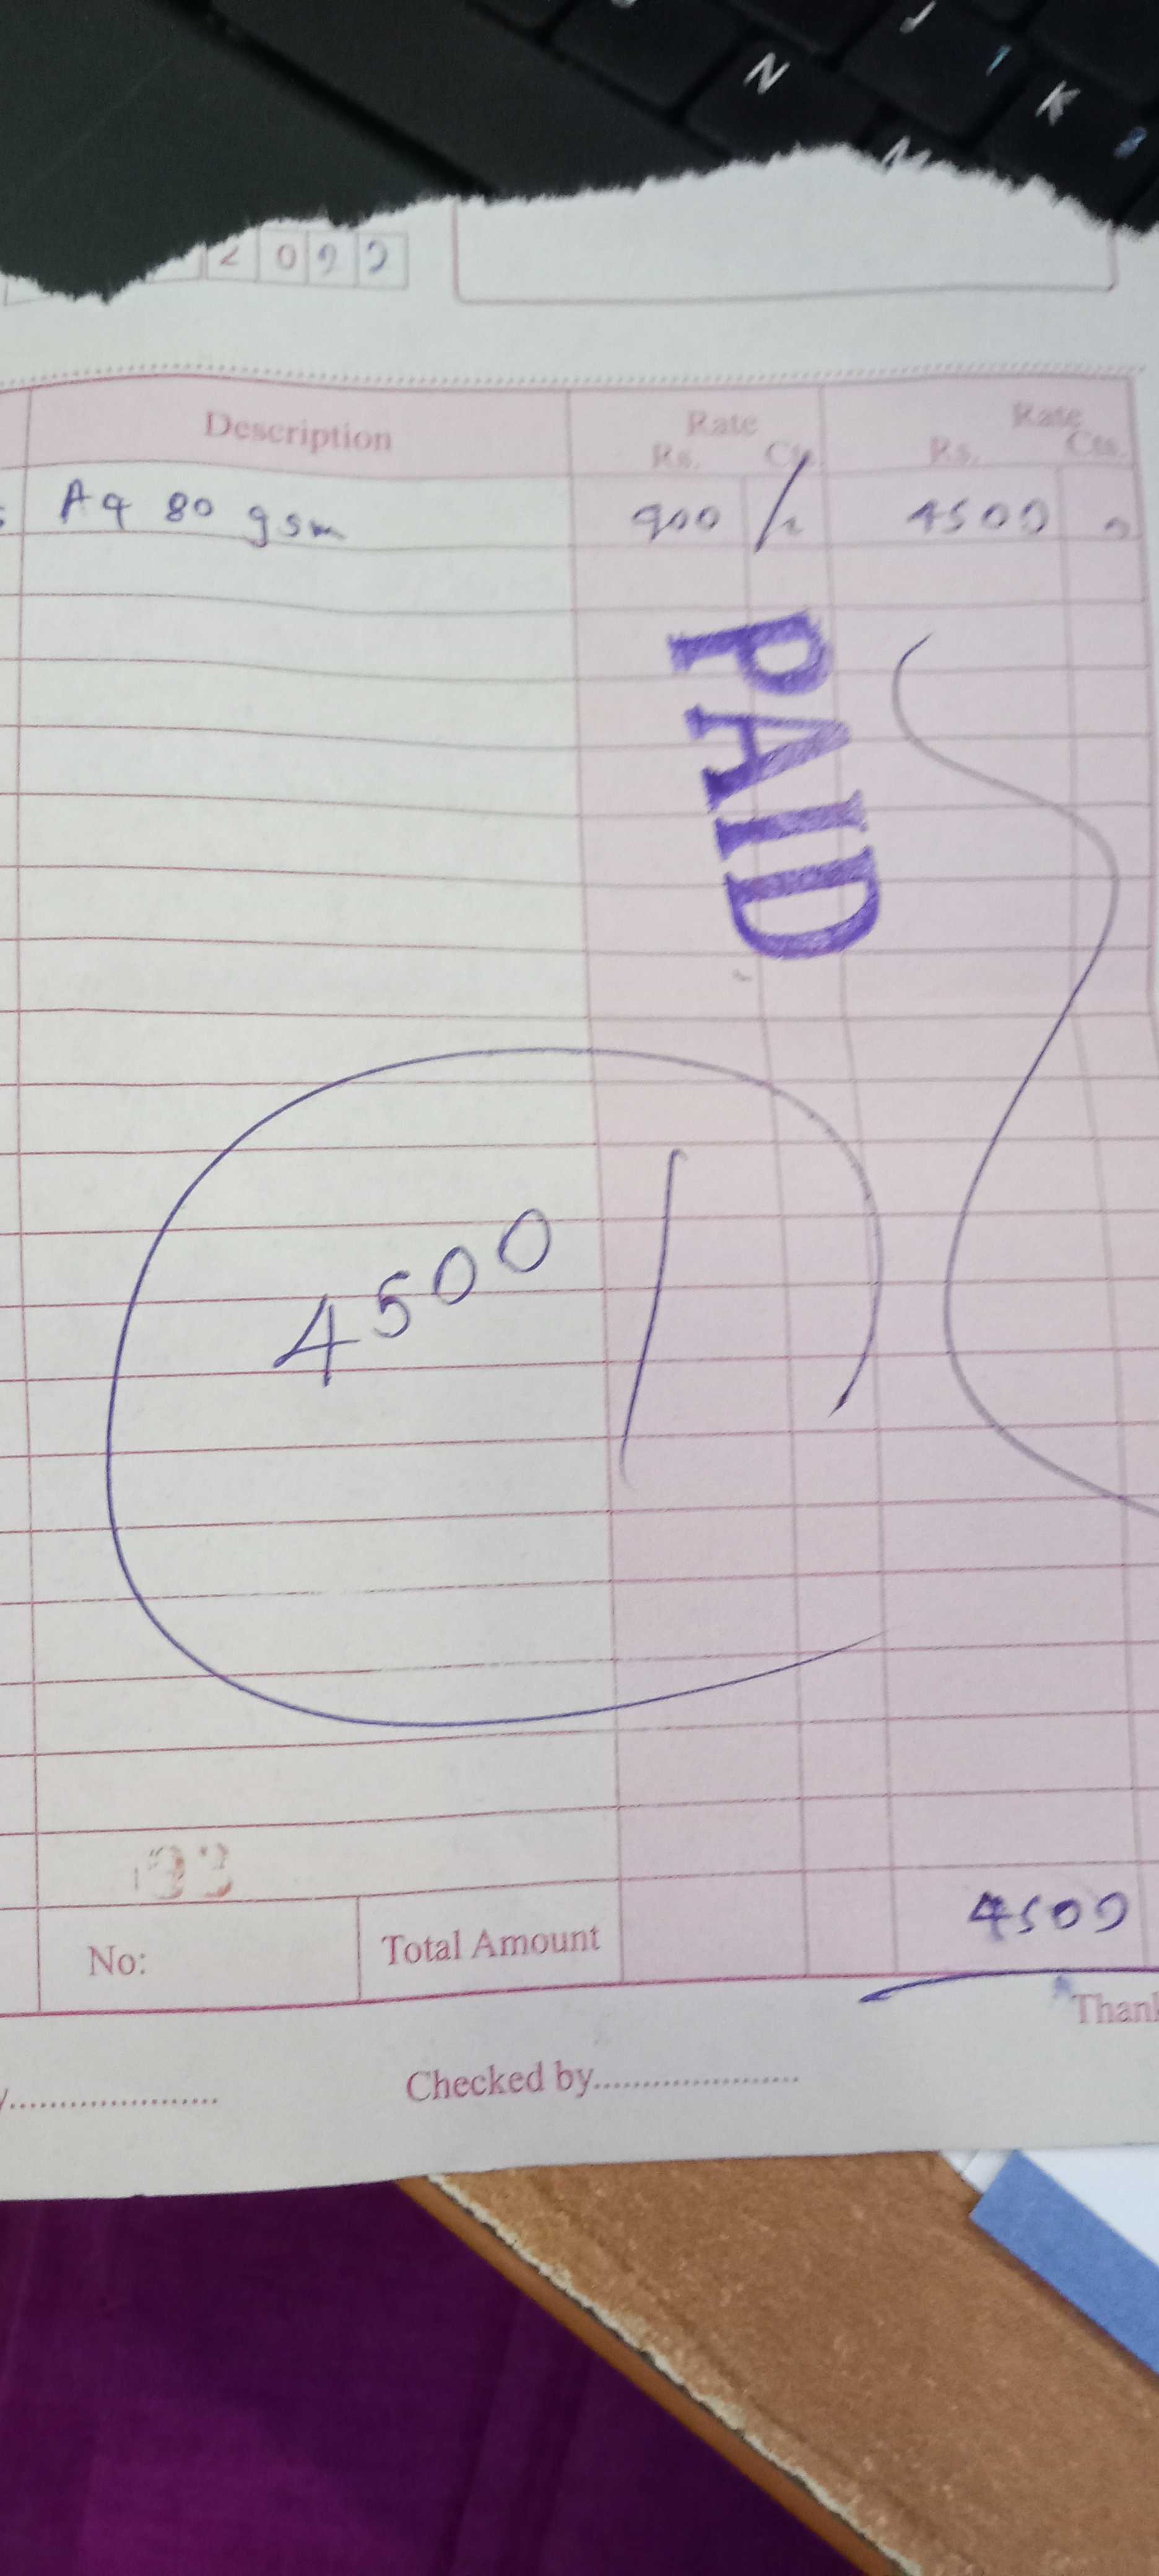 N J 1 K
M
2 0 9 9
Description Rate Rate
Rs. Cts. Rs. Cts.
A4 80 gsm 900 / 4500
PAID
4500 /
No: Total Amount 4500
Thank
Checked by